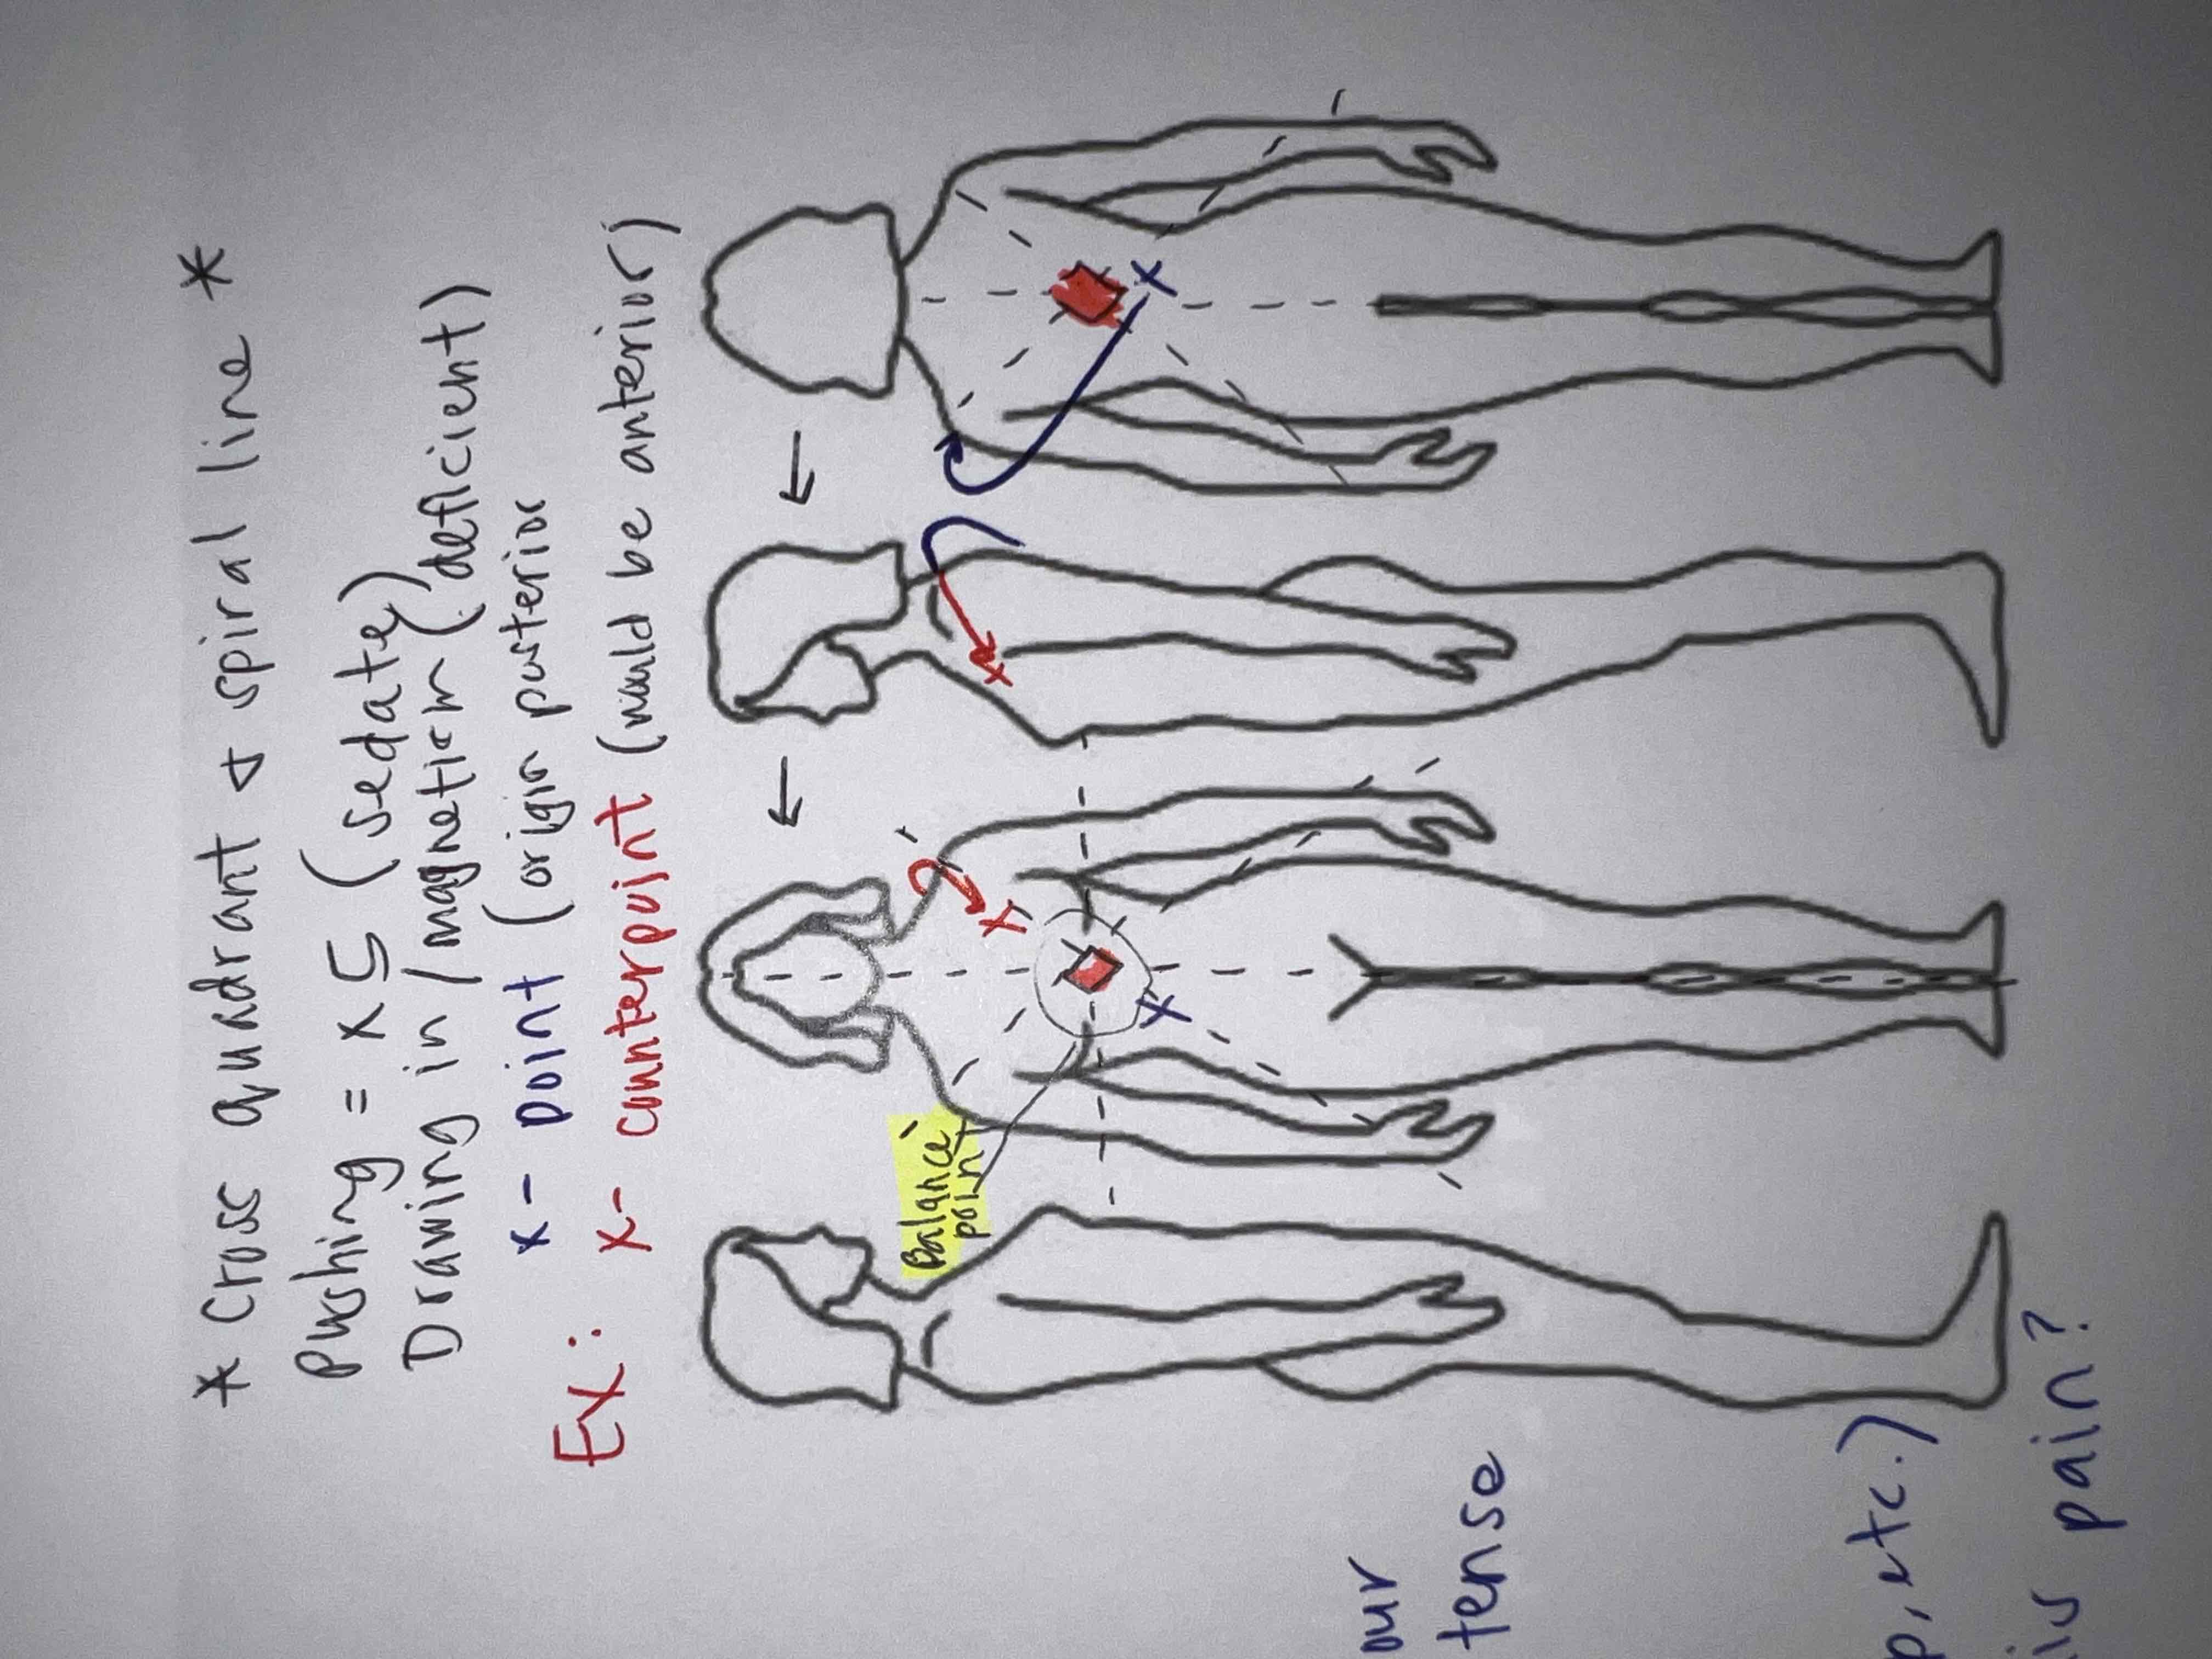 * Cross quadrant & spiral line *
Pushing = x5 (sedate)
Drawing in/magnetism (deficient)
x - point (origin posterior
Ex: x - counterpoint (would be anterior)
Balance
point
our
tense
p, etc.)
is pain?